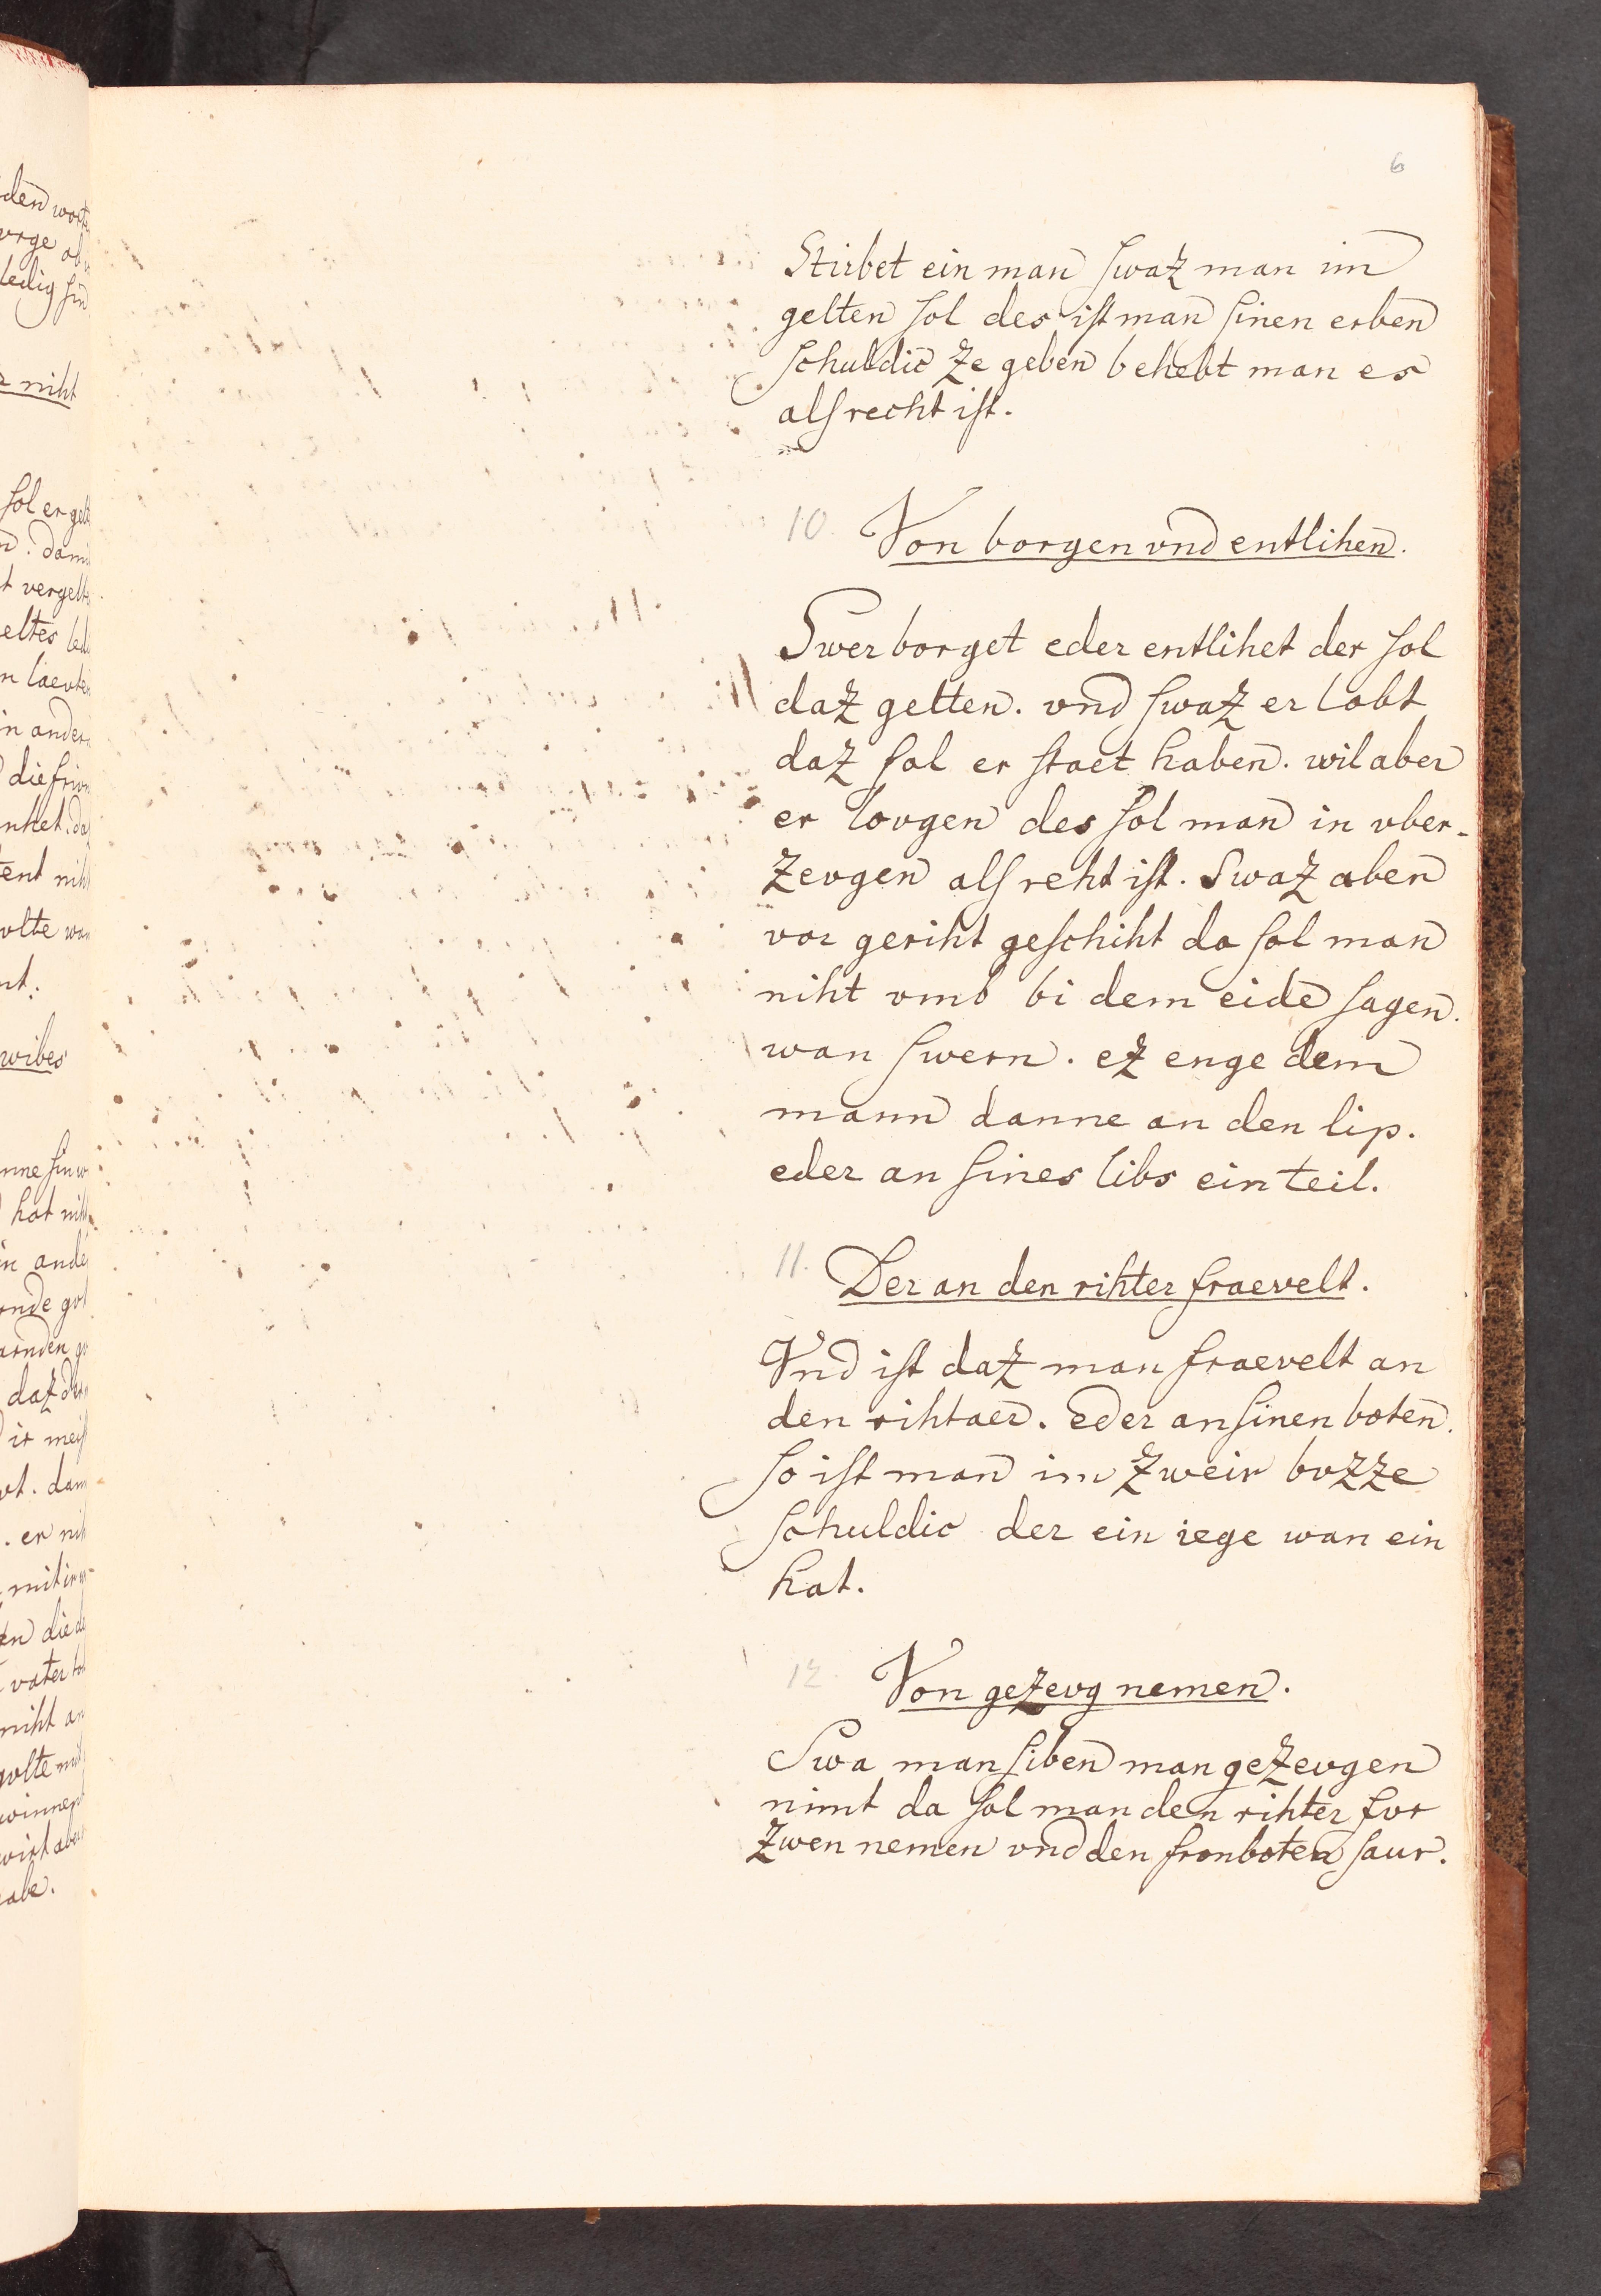 6
Stirbet ein man swaz man im
gelten sol des ist man sinen erben
schuldic ze geben behebt man es
als recht ist.
10. Von borgen vnd entlihen.
Swer borget eder entlihet der sol
daz gelten. vnd swaz er lobt
daz sol er staet haben. wil aber
er lovgen des sol man in vber-
zevgen als reht ist. Swaz aben
vor geriht geschiht da sol man
niht vmb bi dem eide sagen.
wan swern. ez enge dem
mann danne an den lip.
eder an sines libs ein teil.
11. Der an den rihter fraevelt.
Vnd ist daz man fraevelt an
den rihtaer. eder an sinen boten.
so ist man im zweir bvzze
schuldic der ein iege wan ein
hat.
12. Von gezevg nemen.
Swa man siben man gezevgen
nimt da sol man den rihter fvr
zwen nemen vnd den fronboten